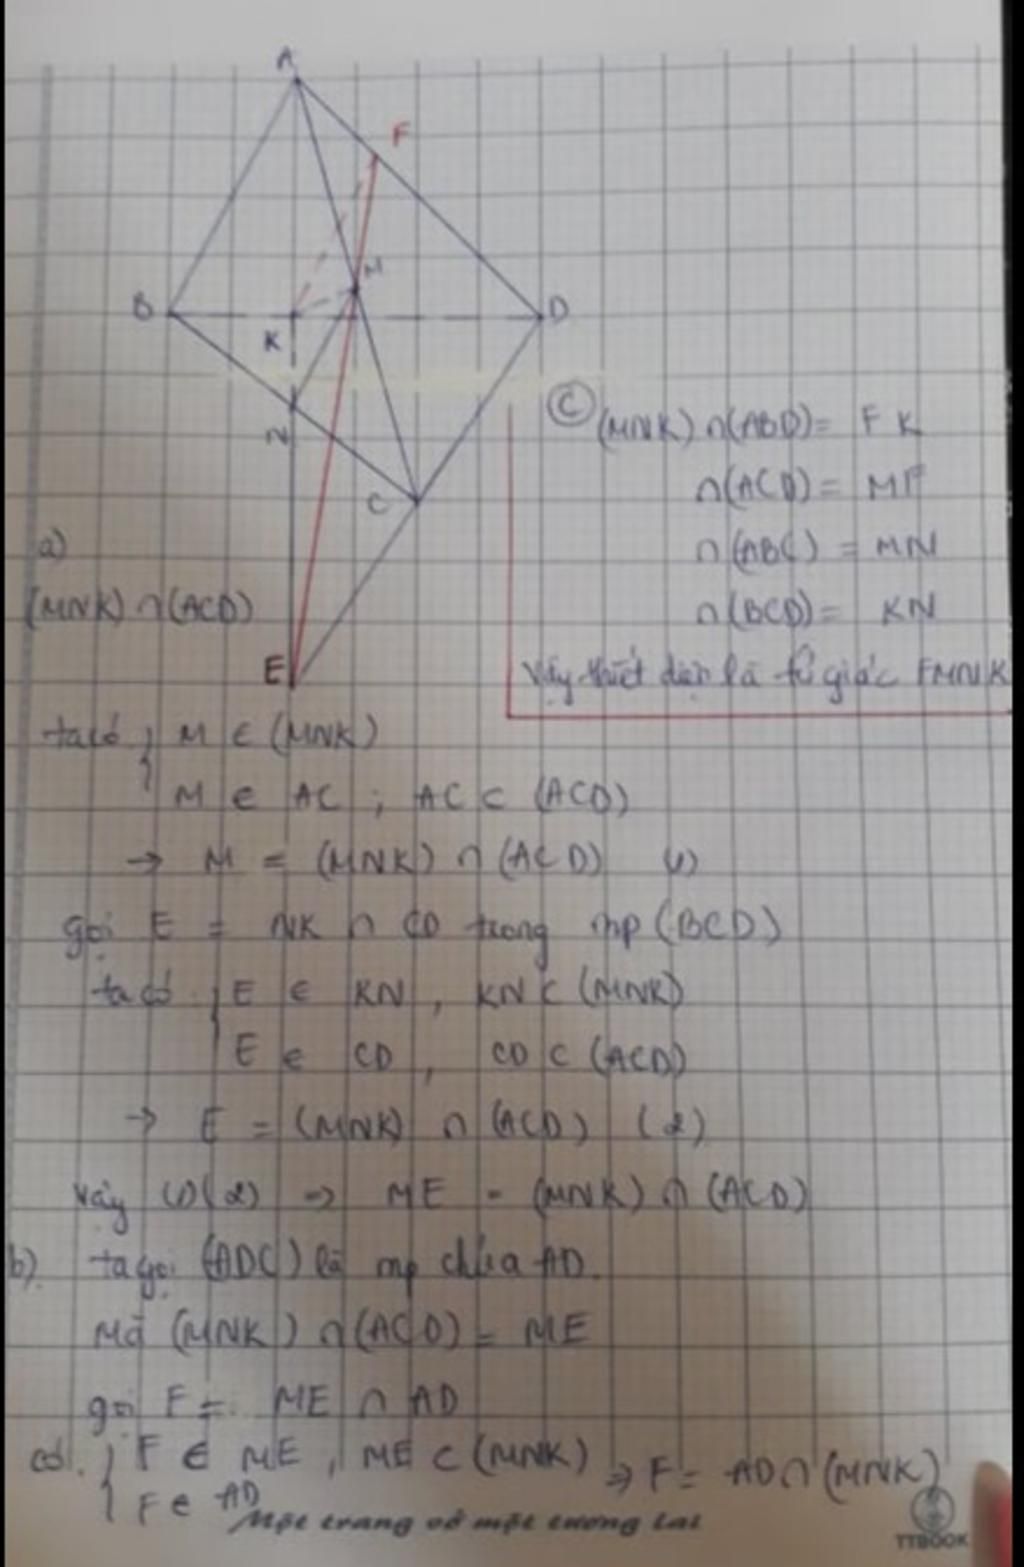 A
F
M
B
K
D
N
C
E
Ⓒ (MNK) ∩ (ABD) = FK
∩ (ACD) = MF
∩ (ABC) = MN
∩ (BCD) = KN
Vậy thiết diện là tứ giác FMNK
a)
(MNK) ∩ (ACD)
ta có { M ∈ (MNK)
M ∈ AC ; AC ⊂ (ACD)
→ M = (MNK) ∩ (ACD) (1)
gọi E = NK ∩ CD trong mp (BCD)
ta có { E ∈ KN , KN ⊂ (MNK)
E ∈ CD , CD ⊂ (ACD)
→ E = (MNK) ∩ (ACD) (2)
Vậy (1)(2) ⇒ ME = (MNK) ∩ (ACD)
b) ta gọi (ADC) là mp chứa AD.
Mà (MNK) ∩ (ACD) = ME
gọi F = ME ∩ AD
có { F ∈ ME , ME ⊂ (MNK) ⇒ F = AD ∩ (MNK)
F ∈ AD
Một trang vở một tương lai
TTBOOK